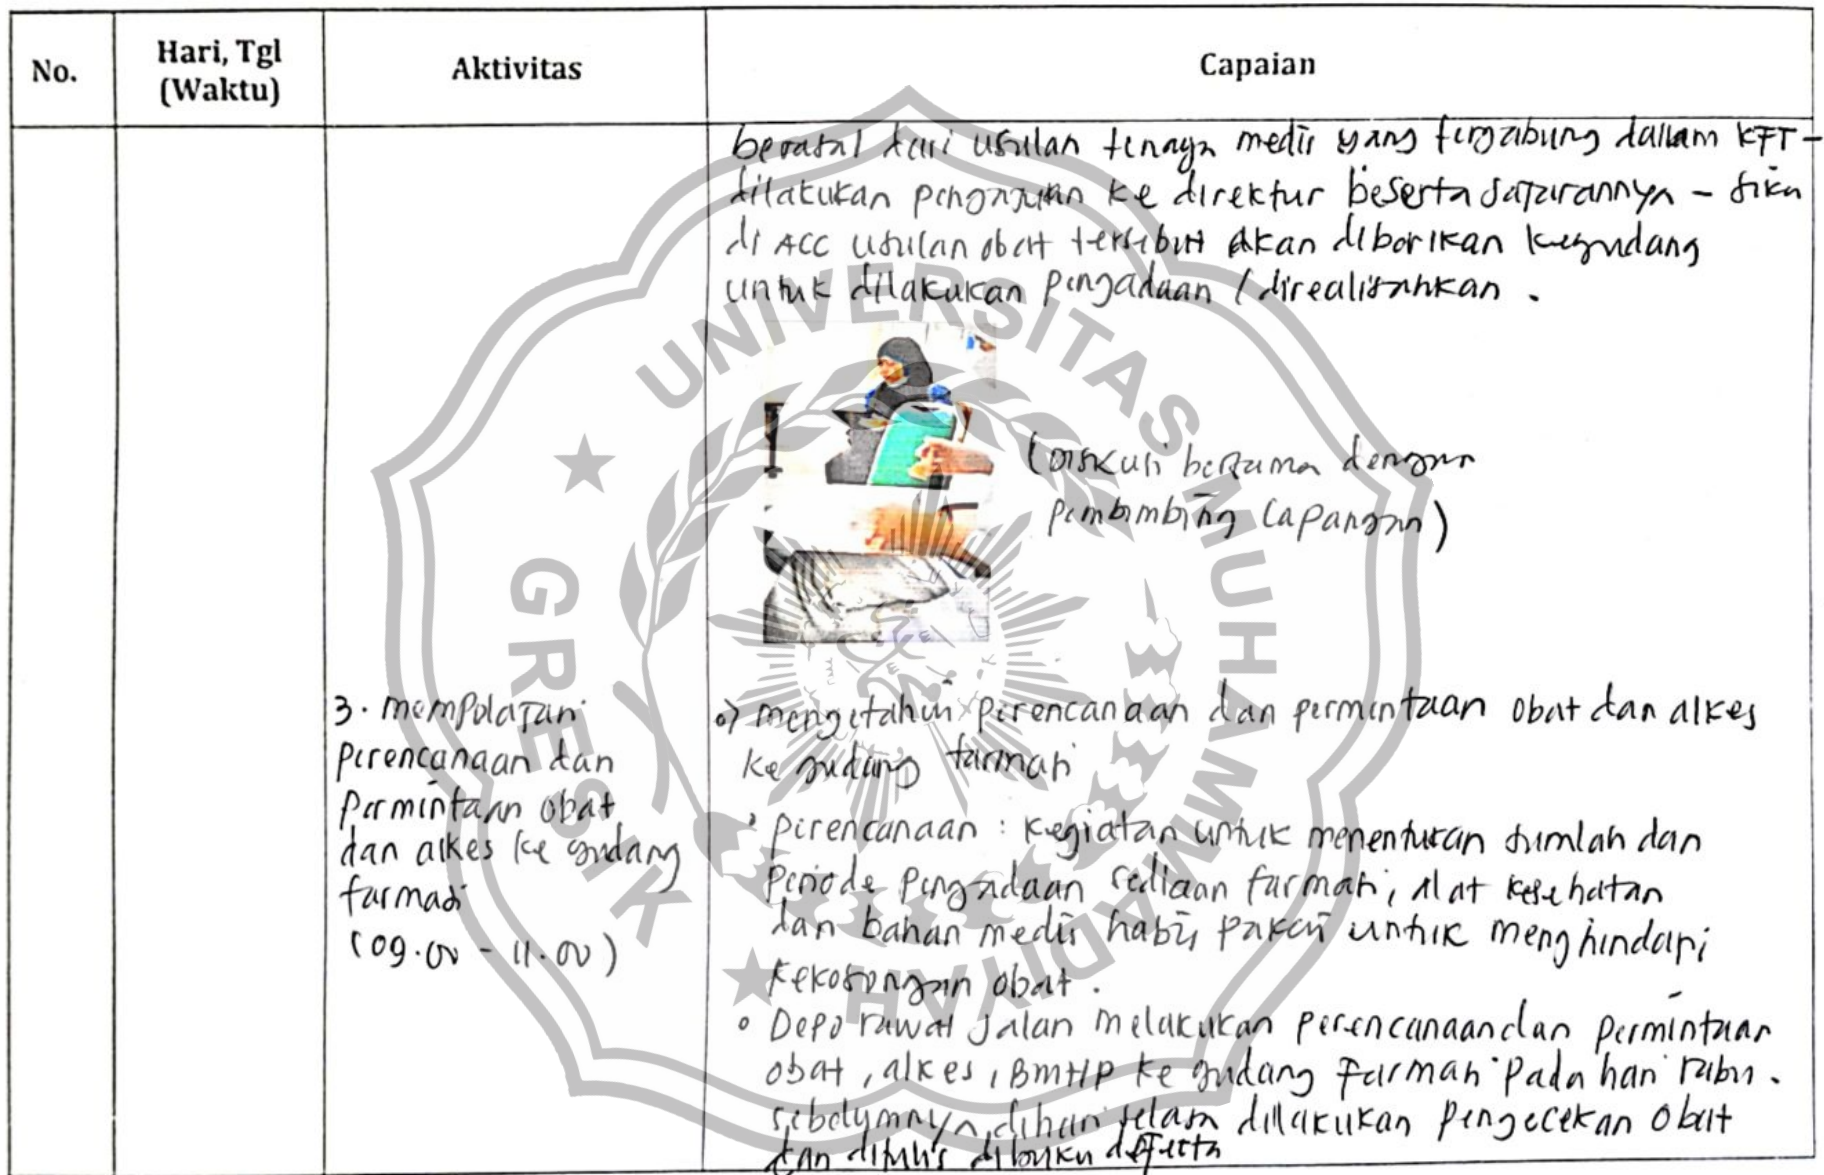 No.
Hari, Tgl
(Waktu)
Aktivitas
Capaian
berasal dari usulan tenaga medis yang tergabung dalam KFT -
dilakukan pengajuan ke direktur beserta jajarannya - Jika
di ACC usulan obat tersebut akan diberikan kegudang
untuk dilakukan pengadaan / direalisasikan .
(Diskusi bersama dengan
pembimbing lapangan)
3. mempelajari
perencanaan dan
permintaan obat
dan alkes ke gudang
farmasi
(09.00 - 11.00)
mengetahui perencanaan dan permintaan obat dan alkes
ke gudang farmasi
perencanaan : kegiatan untuk menentukan jumlah dan
periode pengadaan sediaan farmasi, alat kesehatan
dan bahan medis habis pakai untuk menghindari
kekosongan obat .
Depo rawat jalan melakukan perencanaan dan permintaan
obat , alkes , BMHP ke gudang Farmasi pada hari rabu .
sebelumnya dihari selasa dilakukan pengecekan obat
dan ditulis dibuku defecta
UNIVERSITAS MUHAMMADIYAH
GRESIK